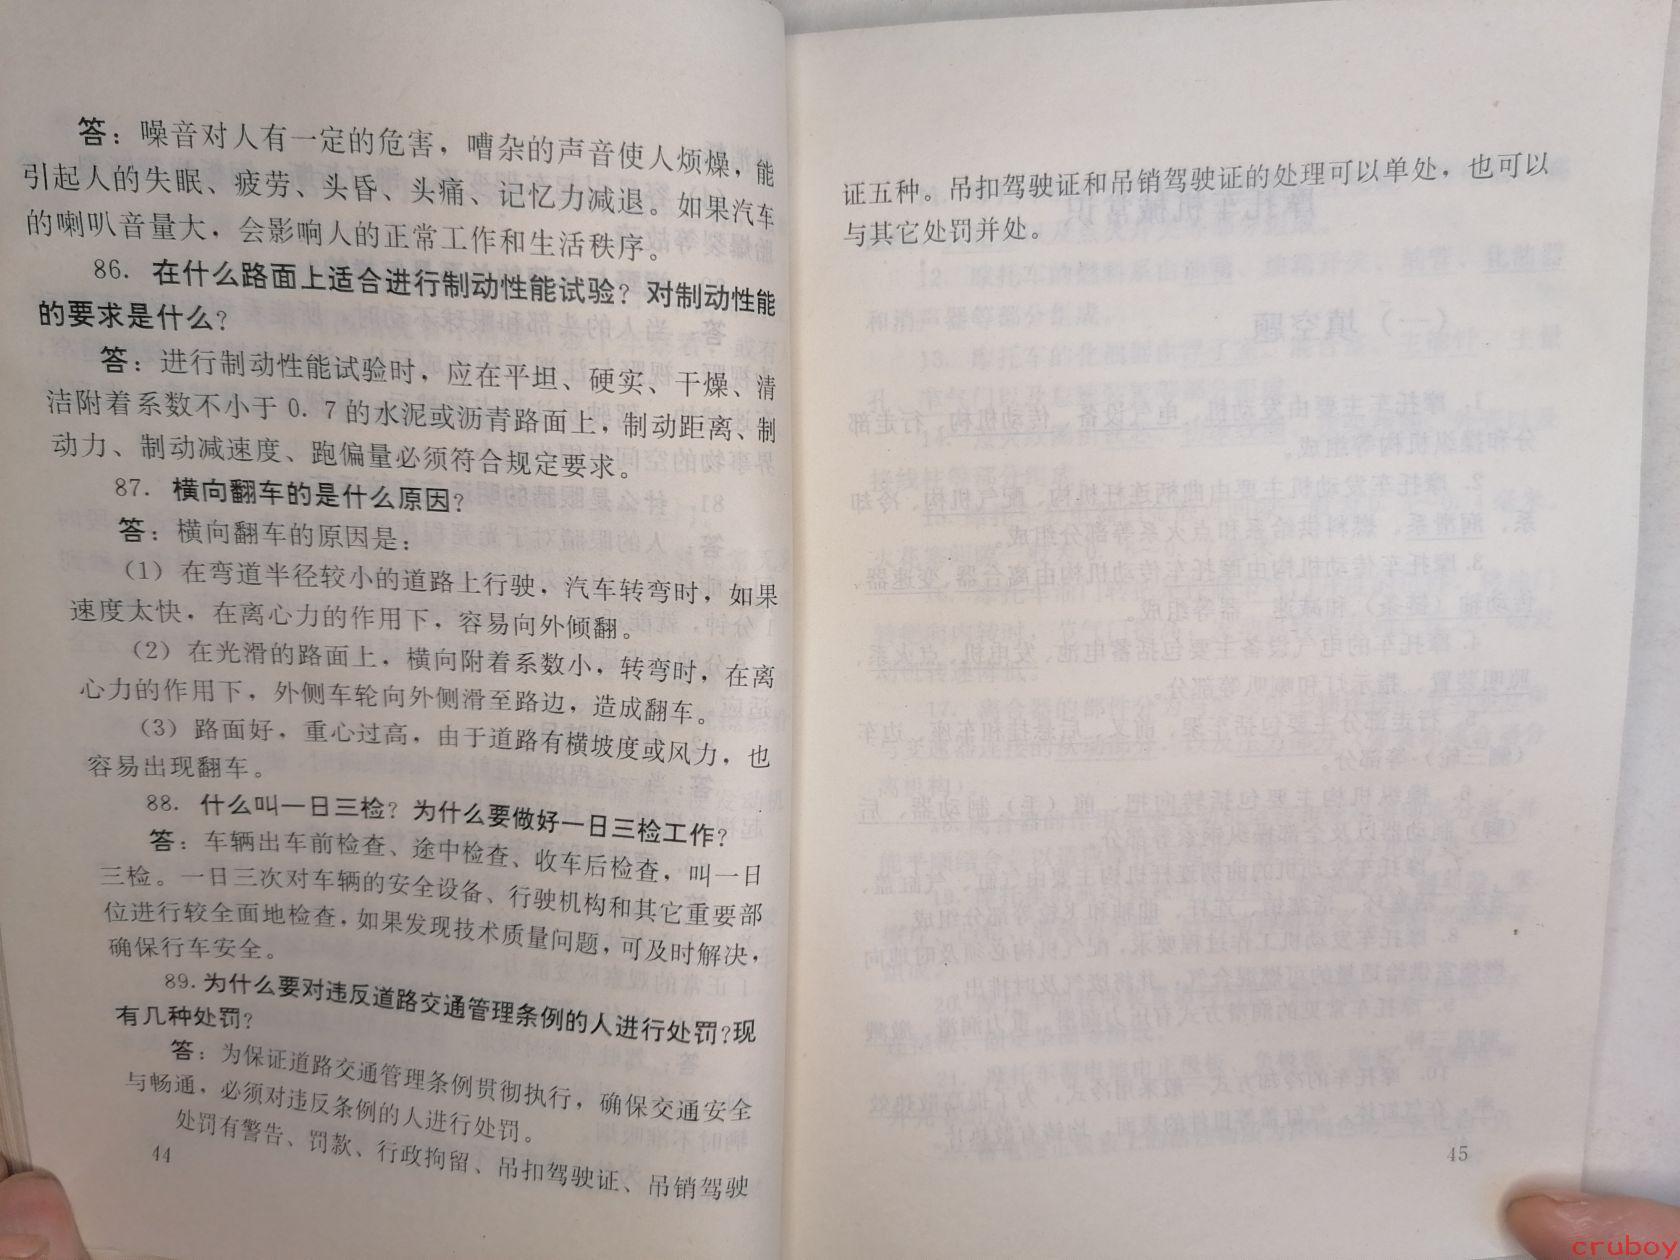 答：噪音对人有一定的危害，嘈杂的声音使人烦燥，能
引起人的失眠、疲劳、头昏、头痛、记忆力减退。如果汽车
的喇叭音量大，会影响人的正常工作和生活秩序。
86. 在什么路面上适合进行制动性能试验？对制动性能
的要求是什么？
答：进行制动性能试验时，应在平坦、硬实、干燥、清
洁附着系数不小于0.7的水泥或沥青路面上，制动距离、制
动力、制动减速度、跑偏量必须符合规定要求。
87. 横向翻车的是什么原因？
答：横向翻车的原因是：
（1）在弯道半径较小的道路上行驶，汽车转弯时，如果
速度太快，在离心力的作用下，容易向外倾翻。
（2）在光滑的路面上，横向附着系数小，转弯时，在离
心力的作用下，外侧车轮向外侧滑至路边，造成翻车。
（3）路面好，重心过高，由于道路有横坡度或风力，也
容易出现翻车。
88. 什么叫一日三检？为什么要做好一日三检工作？
答：车辆出车前检查、途中检查、收车后检查，叫一日
三检。一日三次对车辆的安全设备、行驶机构和其它重要部
位进行较全面地检查，如果发现技术质量问题，可及时解决，
确保行车安全。
89.为什么要对违反道路交通管理条例的人进行处罚？现
有几种处罚？
答：为保证道路交通管理条例贯彻执行，确保交通安全
与畅通，必须对违反条例的人进行处罚。
处罚有警告、罚款、行政拘留、吊扣驾驶证、吊销驾驶
44
证五种。吊扣驾驶证和吊销驾驶证的处理可以单处，也可以
与其它处罚并处。
45
cruboy